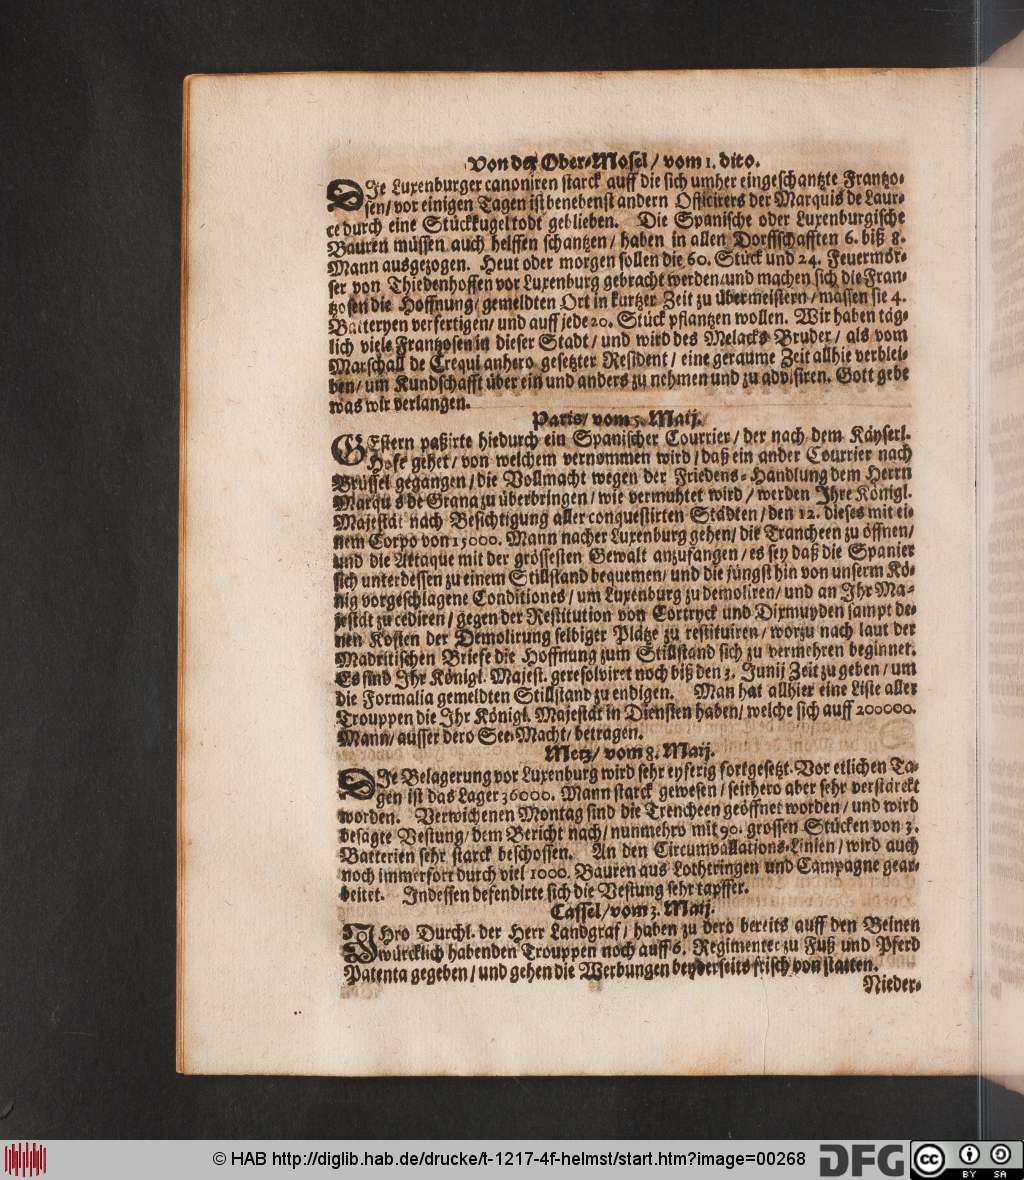 Von der Ober-Mosel / vom 1. dito.
DIe Luxenburger canoniren starck auff die sich umher eingeschantzte Frantzo-
sen/ vor einigen Tagen ist benebenst andern Officirers der Marquis de Laur-
ce durch eine Stückkugel todt geblieben. Die Spanische oder Luxenburgische
Bauren müssen auch helffen schantzen/ haben in allen Dorffschafften 6. biß 8.
Mann ausgezogen. Heut oder morgen sollen die 60. Stück und 24. Feuermör-
ser von Thiedenhoffen vor Luxenburg gebracht werden/und machen sich die Fran-
tzosen die Hoffnung/ gemeldten Ort in kurtzer Zeit zu übermeistern/ massen sie 4.
Batteryen verfertigen/ und auff jede 20. Stück pflantzen wollen. Wir haben täg-
lich viele Frantzosen in dieser Stadt/ und wird des Melacks Bruder/ als vom
Marschall de Crequi anhero gesetzter Resident/ eine geraume Zeit allhie verblei-
ben/ um Kundschafft über ein und anders zu nehmen und zu advisiren. Gott gebe
was wir verlangen.
Paris/ vom 5. Maij.
GEstern paßirte hiedurch ein Spanischer Courrier/ der nach dem Käyserl.
Hofe gehet/ von welchem vernommen wird/ daß ein ander Courrier nach
Brüssel gegangen/ die Vollmacht wegen der Friedens-Handlung dem Herrn
Marquis de Grana zu überbringen/ wie vermuhtet wird/ werden Ihre Königl.
Majestät nach Besichtigung aller conquestirten Städten/ den 12. dieses mit ei-
nem Corpo von 15000. Mann nacher Luxenburg gehen/ die Trancheen zu öffnen/
und die Attaque mit der grössesten Gewalt anzufangen/ es sey daß die Spanier
sich unterdessen zu einem Stillstand bequemen/ und die jüngst hin von unserm Kö-
nig vorgeschlagene Conditiones/ um Luxenburg zu demoliren/ und an Ihr Ma-
jestät zu cediren/ gegen der Restitution von Cortryck und Dixmuyden sampt de-
nen Kosten der Demolirung selbiger Plätze zu restituiren/ worzu nach laut der
Madritischen Briefe die Hoffnung zum Stillstand sich zu vermehren beginnet.
Es sind Ihr Königl. Majest. geresolviret noch biß den 3. Junij Zeit zu geben/ um
die Formalia gemeldten Stillstand zu endigen. Man hat allhier eine Liste aller
Trouppen die Ihr Königl. Majestät in Diensten haben/ welche sich auff 200000.
Mann/ ausser dero See-Macht/ betragen.
Metz/ vom 8. Maij.
DIe Belagerung vor Luxenburg wird sehr eyferig fortgesetzt. Vor etlichen Ta-
gen ist das Lager 36000. Mann starck gewesen/ seithero aber sehr verstärckt
worden. Verwichenen Montag sind die Trencheen geöffnet worden/ und wird
besagte Vestung/ dem Bericht nach/ nunmehro mit 90. grossen Stücken von 3.
Batterien sehr starck beschossen. An den Circumvallations-Linien/ wird auch
noch immerfort durch viel 1000. Bauren aus Lothtringen und Campagne gear-
beitet. Indessen defendirte sich die Vestung sehr tapffer.
Cassel/ vom 3. Maij.
IHro Durchl. der Herr Landgraf/ haben zu dero bereits auff den Beinen
würcklich habenden Trouppen noch auff 6. Regimenter zu Fuß und Pferd
Patenta gegeben/ und gehen die Werbungen beyderseits frisch von statten.
Nieder-
© HAB http://diglib.hab.de/drucke/t-1217-4f-helmst/start.htm?image=00268
DFG
cc BY SA